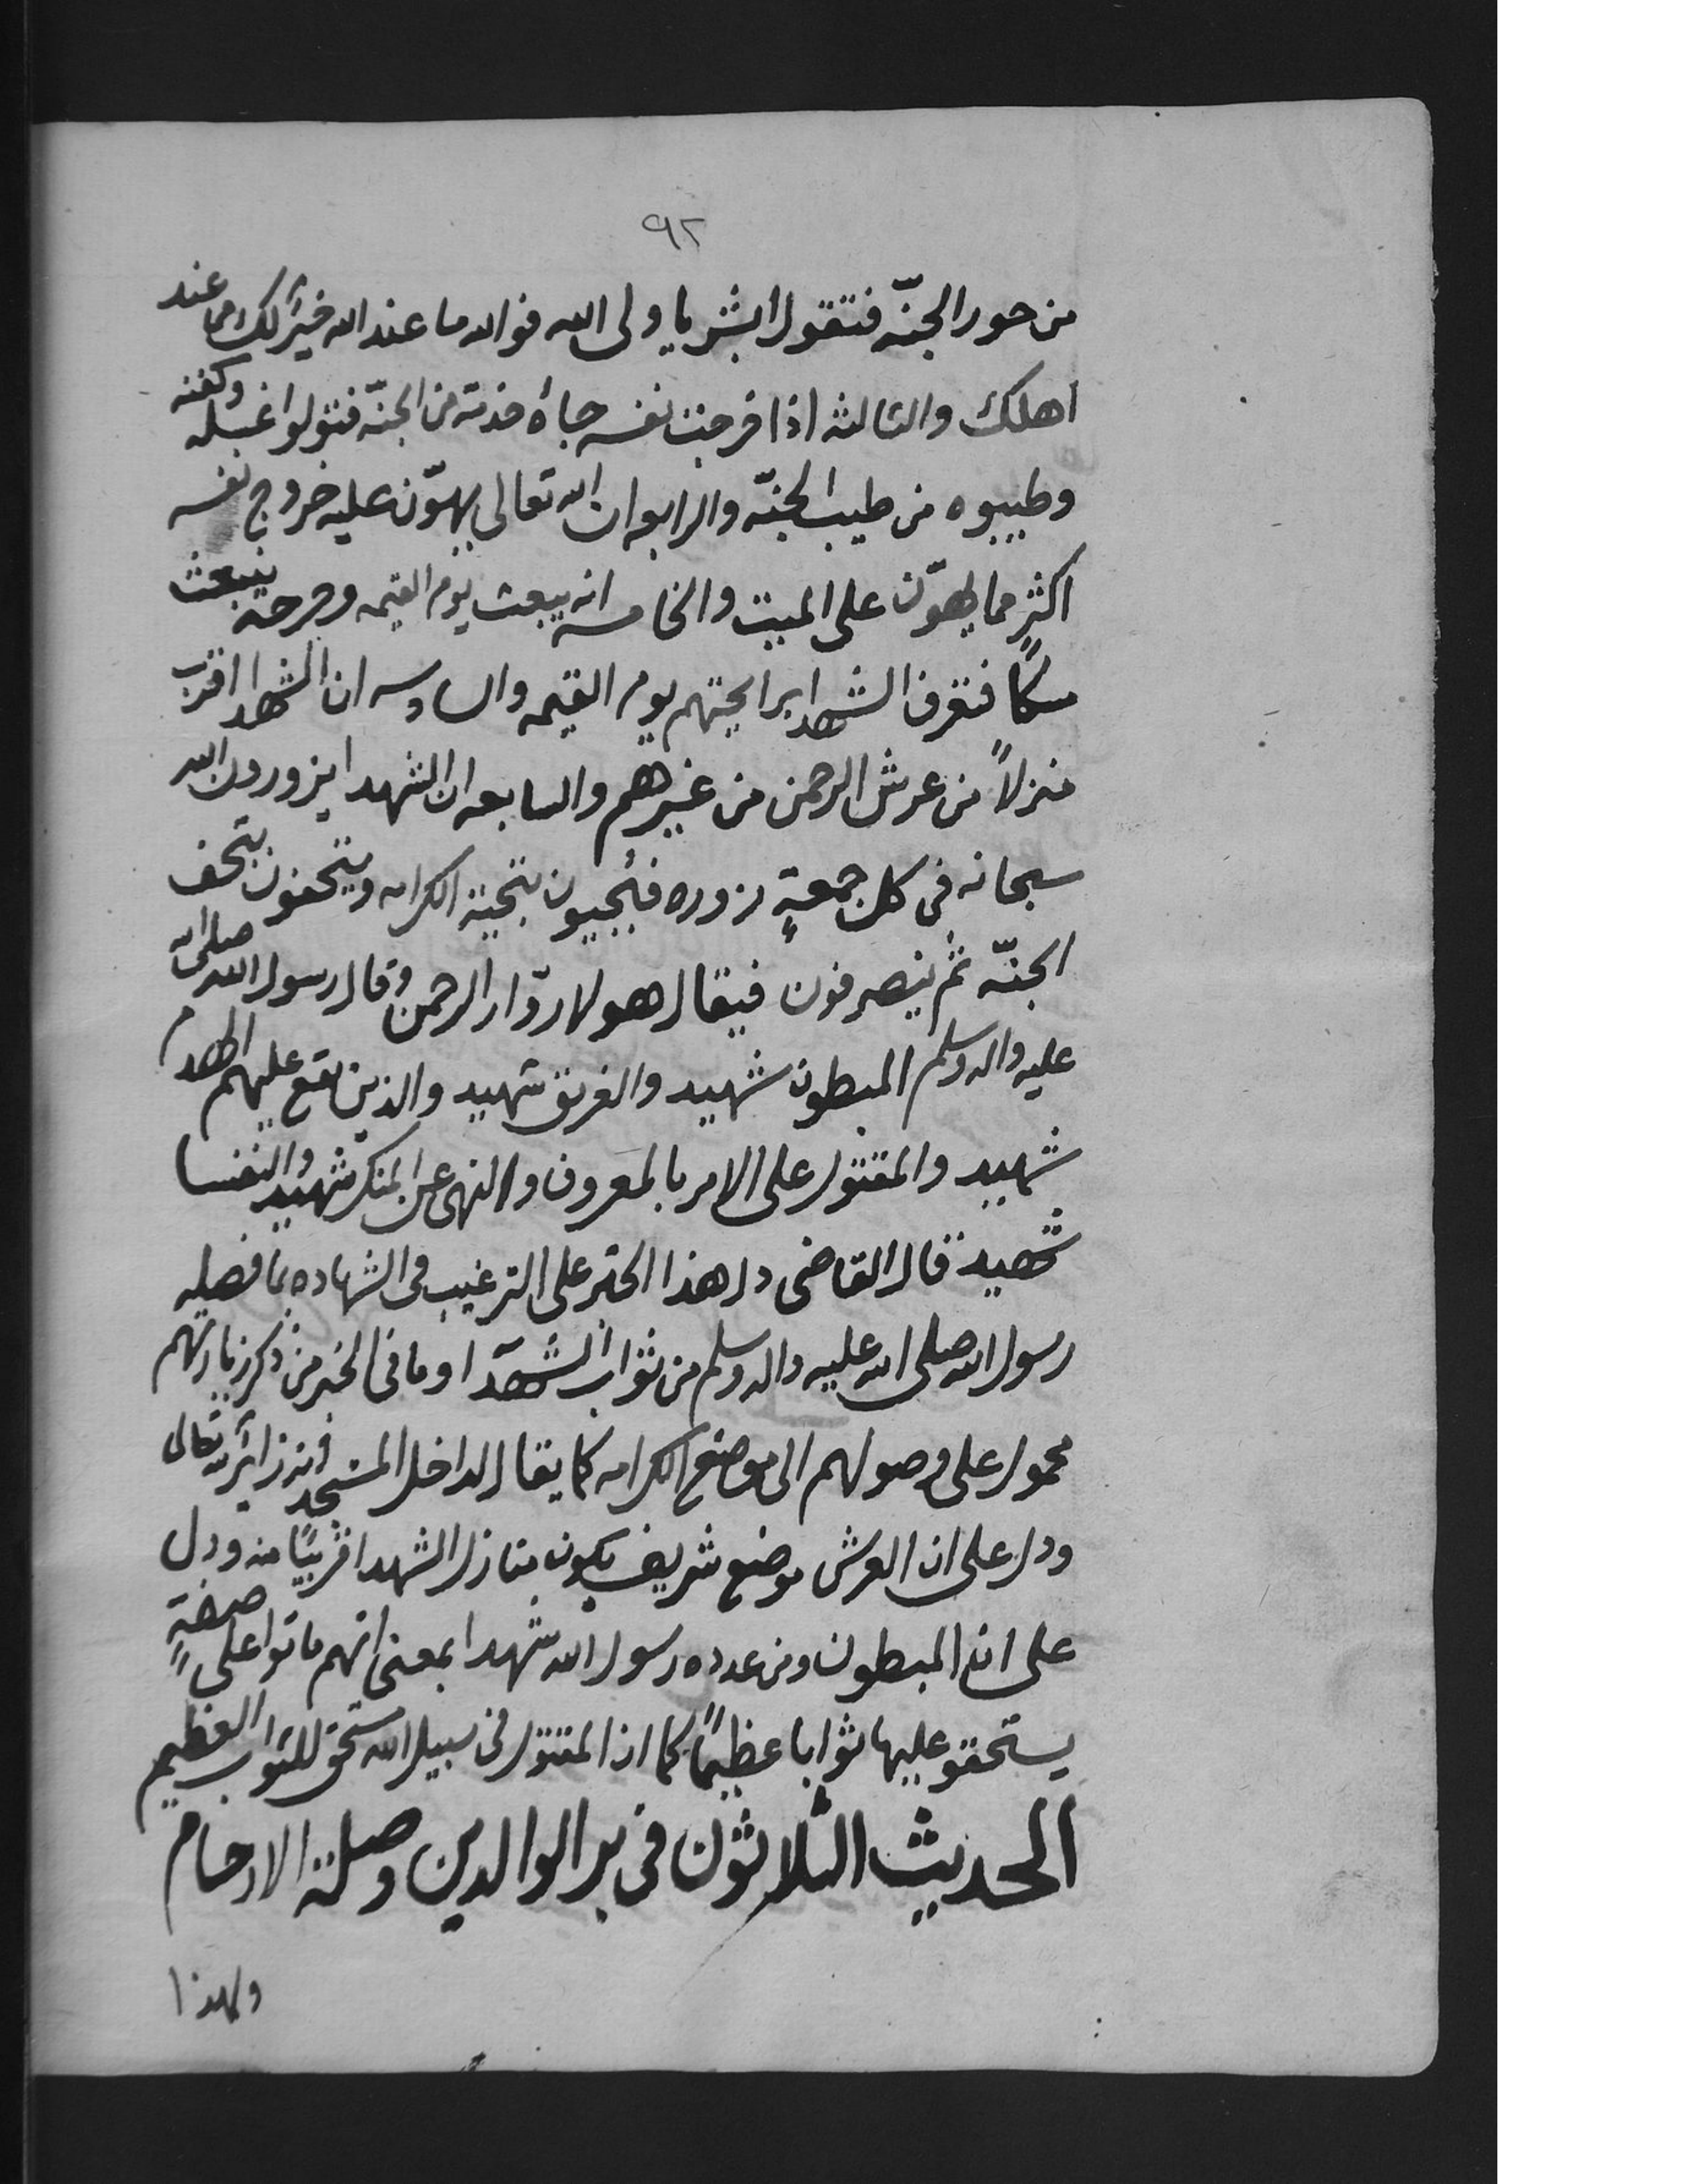 ٩٢
من حور الجنّه فتقول ابشر يا ولى الله فوالله ما عند الله خيرٌ لك مما عند
اهلك والثالثه اذا خرجت نفسه جاءه خدمته من الجنّه فتولوا غسله وكفنه
وطيبوه من طيب الجنّه والرابعه ان الله تعالى يهوّن عليه خروج نفسه
اكثر مما يهوّن على الميت والخامسه انه يبعث يوم القيمه وجرحه ينبعث
مسكاً فتعرف الشهدا برايحتهم يوم القيمه والسادسه ان الشهدا اقرب
منزلاً من عرش الرحمن من غيرهم والسابعه ان الشهدا يزورون الله
سبحانه فى كل جمعةٍ زوره فيُحيون بتحية الكرامه ويتحفون بتحف
الجنّه ثم ينصرفون فيقال هولا زوّار الرحمن وقال رسول الله صلى الله
عليه واله وسلم المبطون شهيد والغريق شهيد والذين يقع عليهم الهدم
شهيد والمقتول على الامر بالمعروف والنهى عن المنكر شهيد والنفسا
شهيد قال القاضى دل هذا الخبر على الترغيب فى الشهاده بما فصله
رسول الله صلى الله عليه واله وسلم من ثواب الشهدآ وما فى الخبر من ذكر زيارتهم
محمول على وصولهم الى موضع الكرامه كما يقال لداخل المسجد انه زائر لله تعالى
ودل على ان العرش موضع شريف يكون منازل الشهدا قريبًا منه ودل
على ان المبطون ومن عدده رسول الله شهدا بمعنى انهم ماتوا على صفةٍ
يستحقو عليها ثوابا عظيماً كما ان المقتول فى سبيل الله مستحق للثواب العظيم
الحديث الثلاثون فى بر الوالدين وصلة الارحام
ولهذا